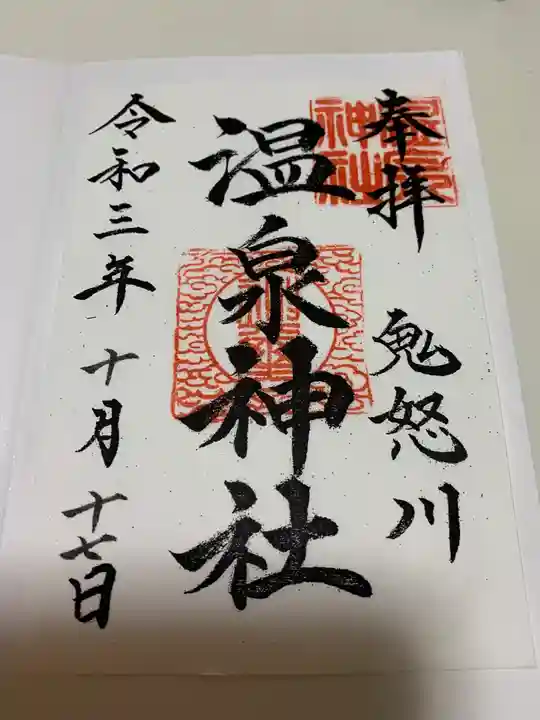 奉拝
鬼怒川
温泉神社
令和三年十月十七日